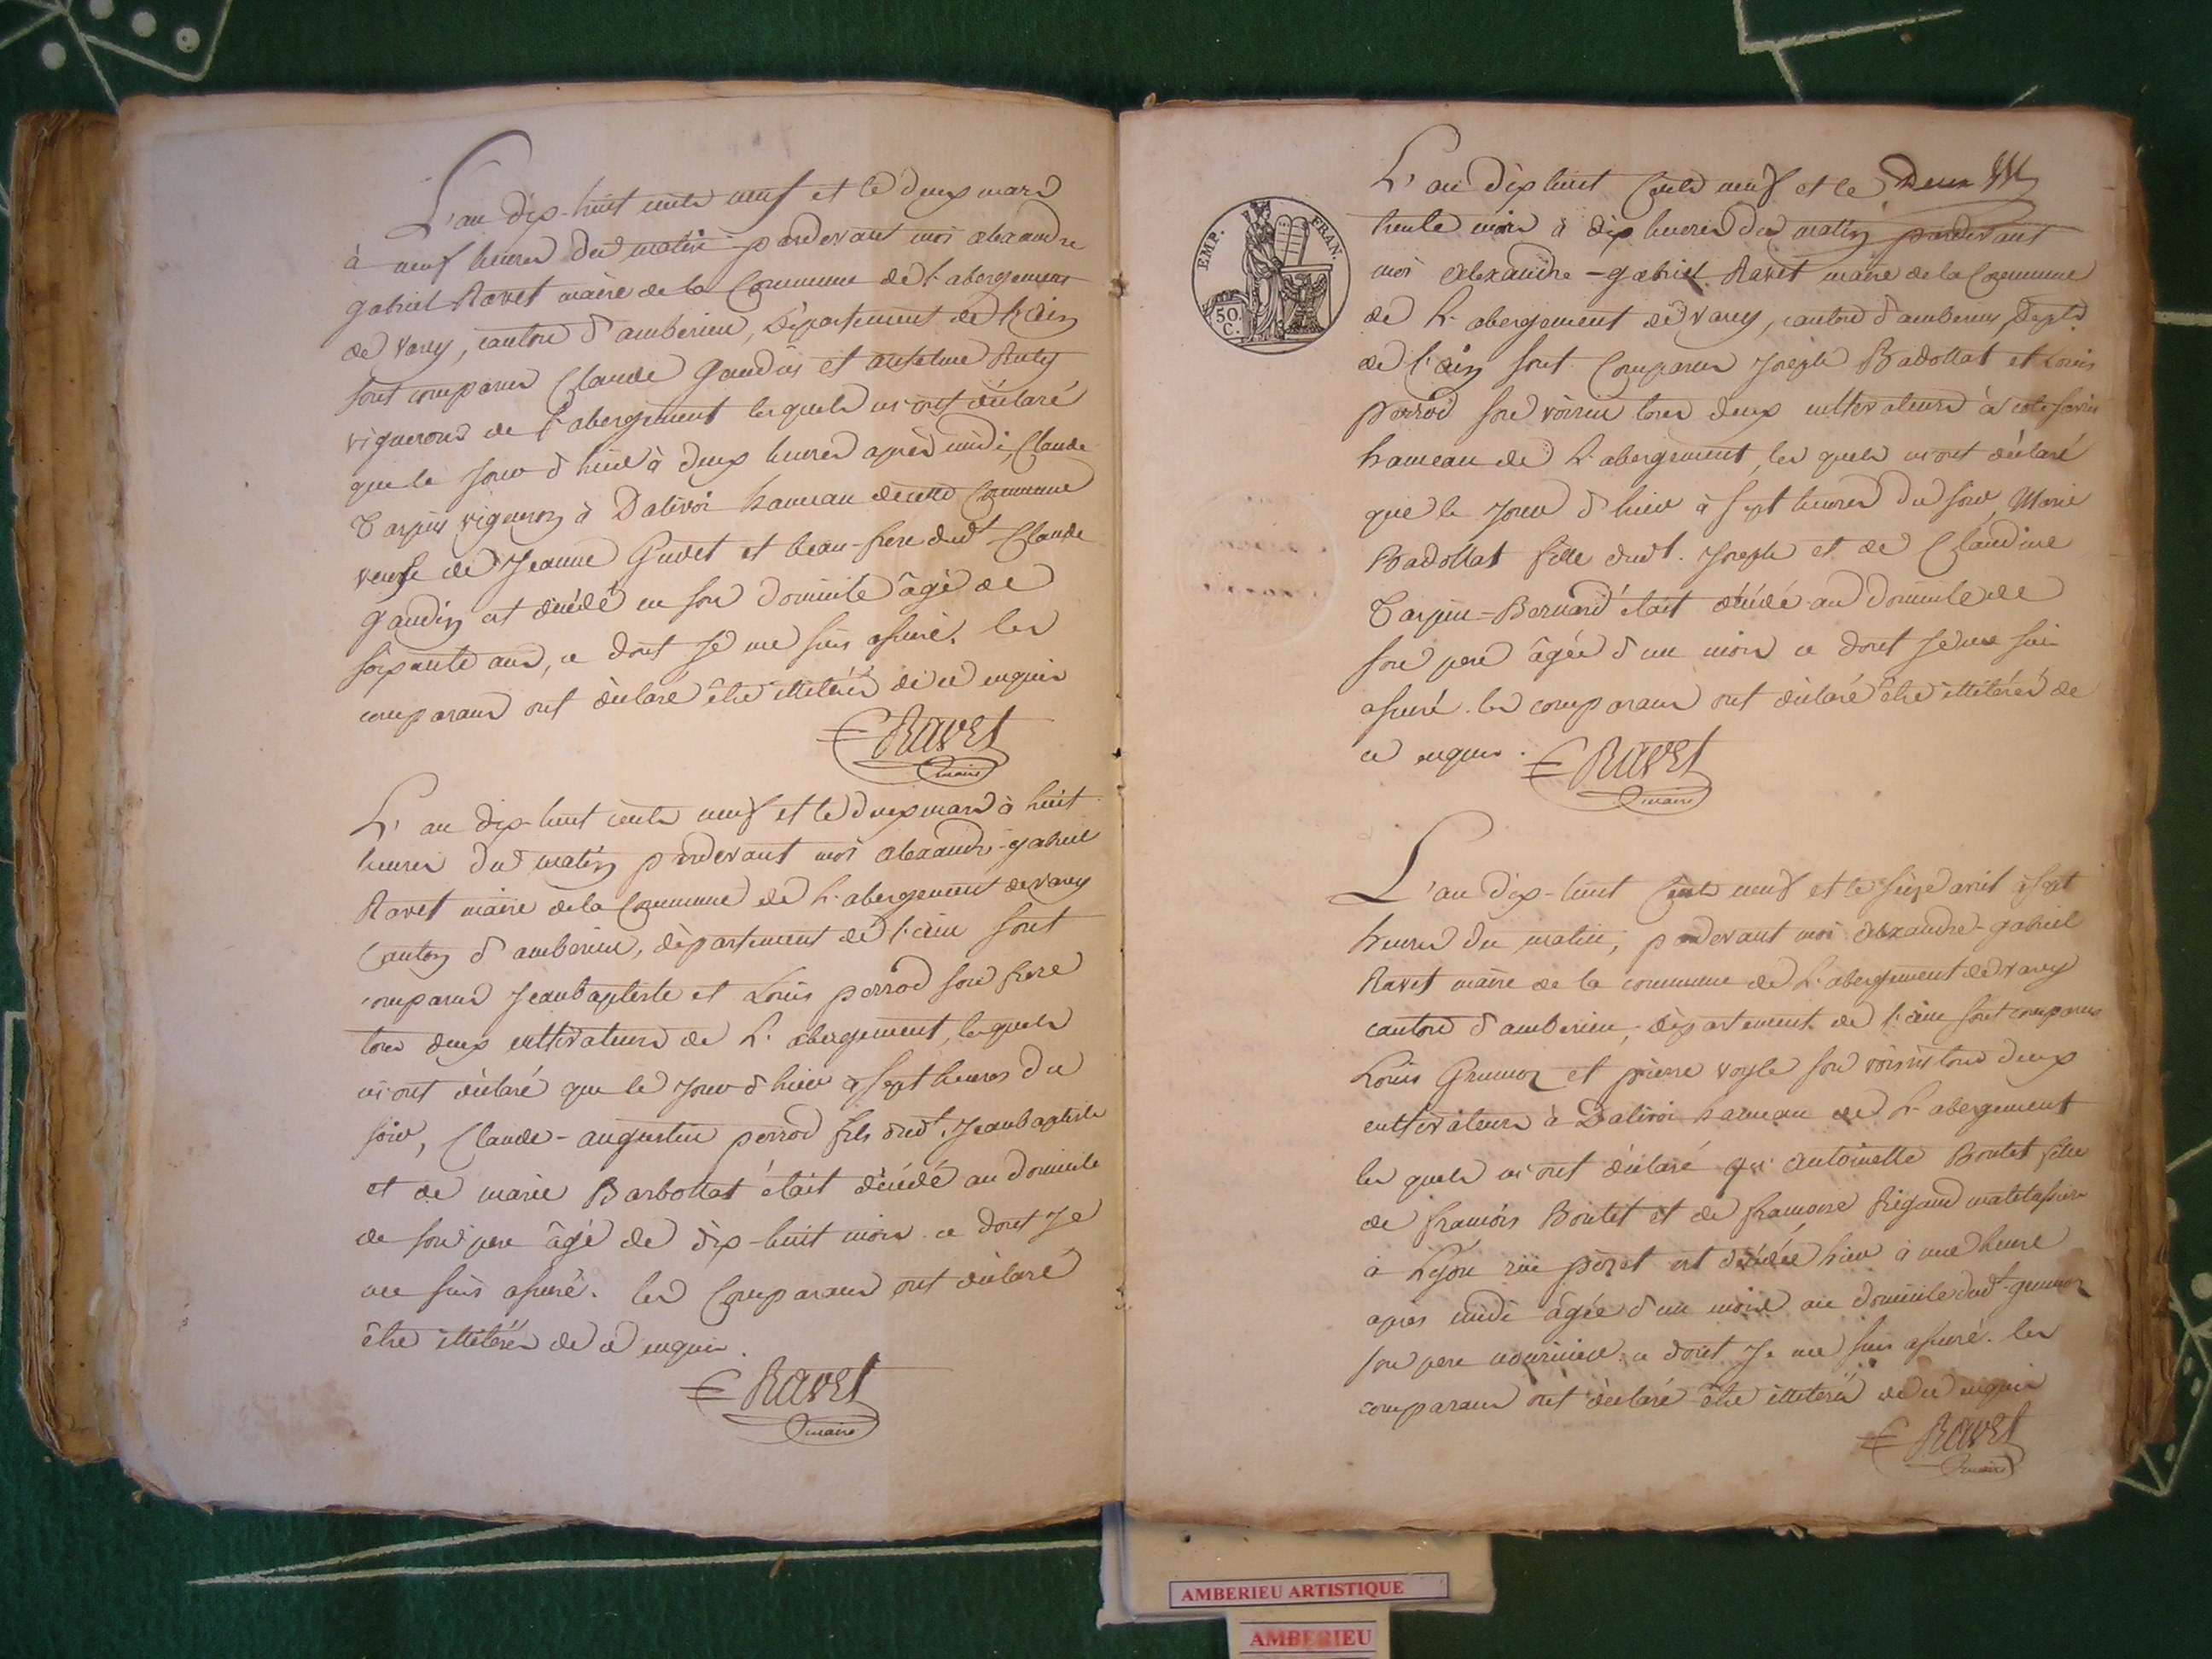 L'an dix-huit cents neuf et le deux mars
à neuf heures du matin pardevant moi alexandre
gabriel Ravet maire de la Commune de l'abergement
de varey, canton d'amberieu, Département de l'ain
sont comparus Claude Gaudin et anselme
vignerons de l'abergement lesquels m'ont déclaré
que le jour d'hier à deux heures après midi, Claude
Tarpin vigneron à Dalivoi hameau de cette Commune
veuf de Jeanne Guvet et beau-frere dudt Claude
gaudin est décédé en son domicile âgé de
soixante ans, ce dont je me suis assuré. les
comparans ont déclaré être illitérés de ce enquis
Ravet
maire
L'an dix-huit cents neuf et le deux mars à huit
heures du matin pardevant moi alexandre-gabriel
Ravet maire de la Commune de L'abergement de varey
Canton d'amberieu, département de l'ain sont
comparus Jeanbaptiste et Louis perrod son frere
tous deux cultivateurs de L'abergement, lesquels
m'ont déclaré que le jour d'hier à sept heures du
soir, Claude-augustin perrod fils dudt. Jeanbaptiste
et de marie Barbollat était décédé au domicile
de son pere âgé de dix-huit mois ce dont Je
me suis assuré. les Comparans ont déclaré
être illitérés de ce enquis.
Ravet
maire
EMP. FRAN.
50
C.
L'an dix huit Cents neuf et le
trente mars à dix heures du matin pardevant
moi Alexandre-gabriel Ravet maire de la Commune
de L'abergement de varey, canton d'amberieu, Deptt
de l'ain sont Comparus Joseph Badollat et Louis
perrod son voisin tous deux cultivateurs à
hameau de L'abergement, les quels m'ont déclaré
que le jour d'hier à sept heures du soir, Marie
Badollat fille dudt. Joseph et de Claudine
Tarpin-Bernard était décédé au domicile de
son pere âgée d'un mois ce dont Je me suis
assuré. les comparans ont déclaré être illitérés de
ce enquis.
Ravet
maire
L'an dix-huit Cents neuf et le seize avril à sept
heures du matin, pardevant moi alexandre-gabriel
Ravet maire de la commune de L'abergement de varey
canton d'amberieu, département de l'ain sont comparus
Louis Grumoz et pierre voyle son voisin tous deux
cultivateurs à Dalivoi hameau de L'abergement
les quels m'ont déclaré que Antoinette Boutet fille
de françois Boutet et de françoise Rigaud matelassiers
à Lyon rüe est décédée hier à une heure
apres midi âgée d'un mois au domicile dudt. grumoz
son pere nourricier ce dont Je me suis assuré. les
comparans ont déclaré être illitérés de ce enquis
Ravet
maire
AMBERIEU ARTISTIQUE
AMBERIEU